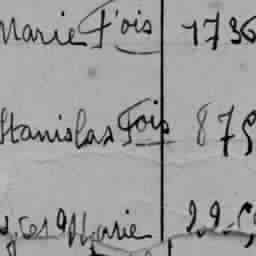 Marie Fois 1736
Stanislas Fois 875
Marie 22